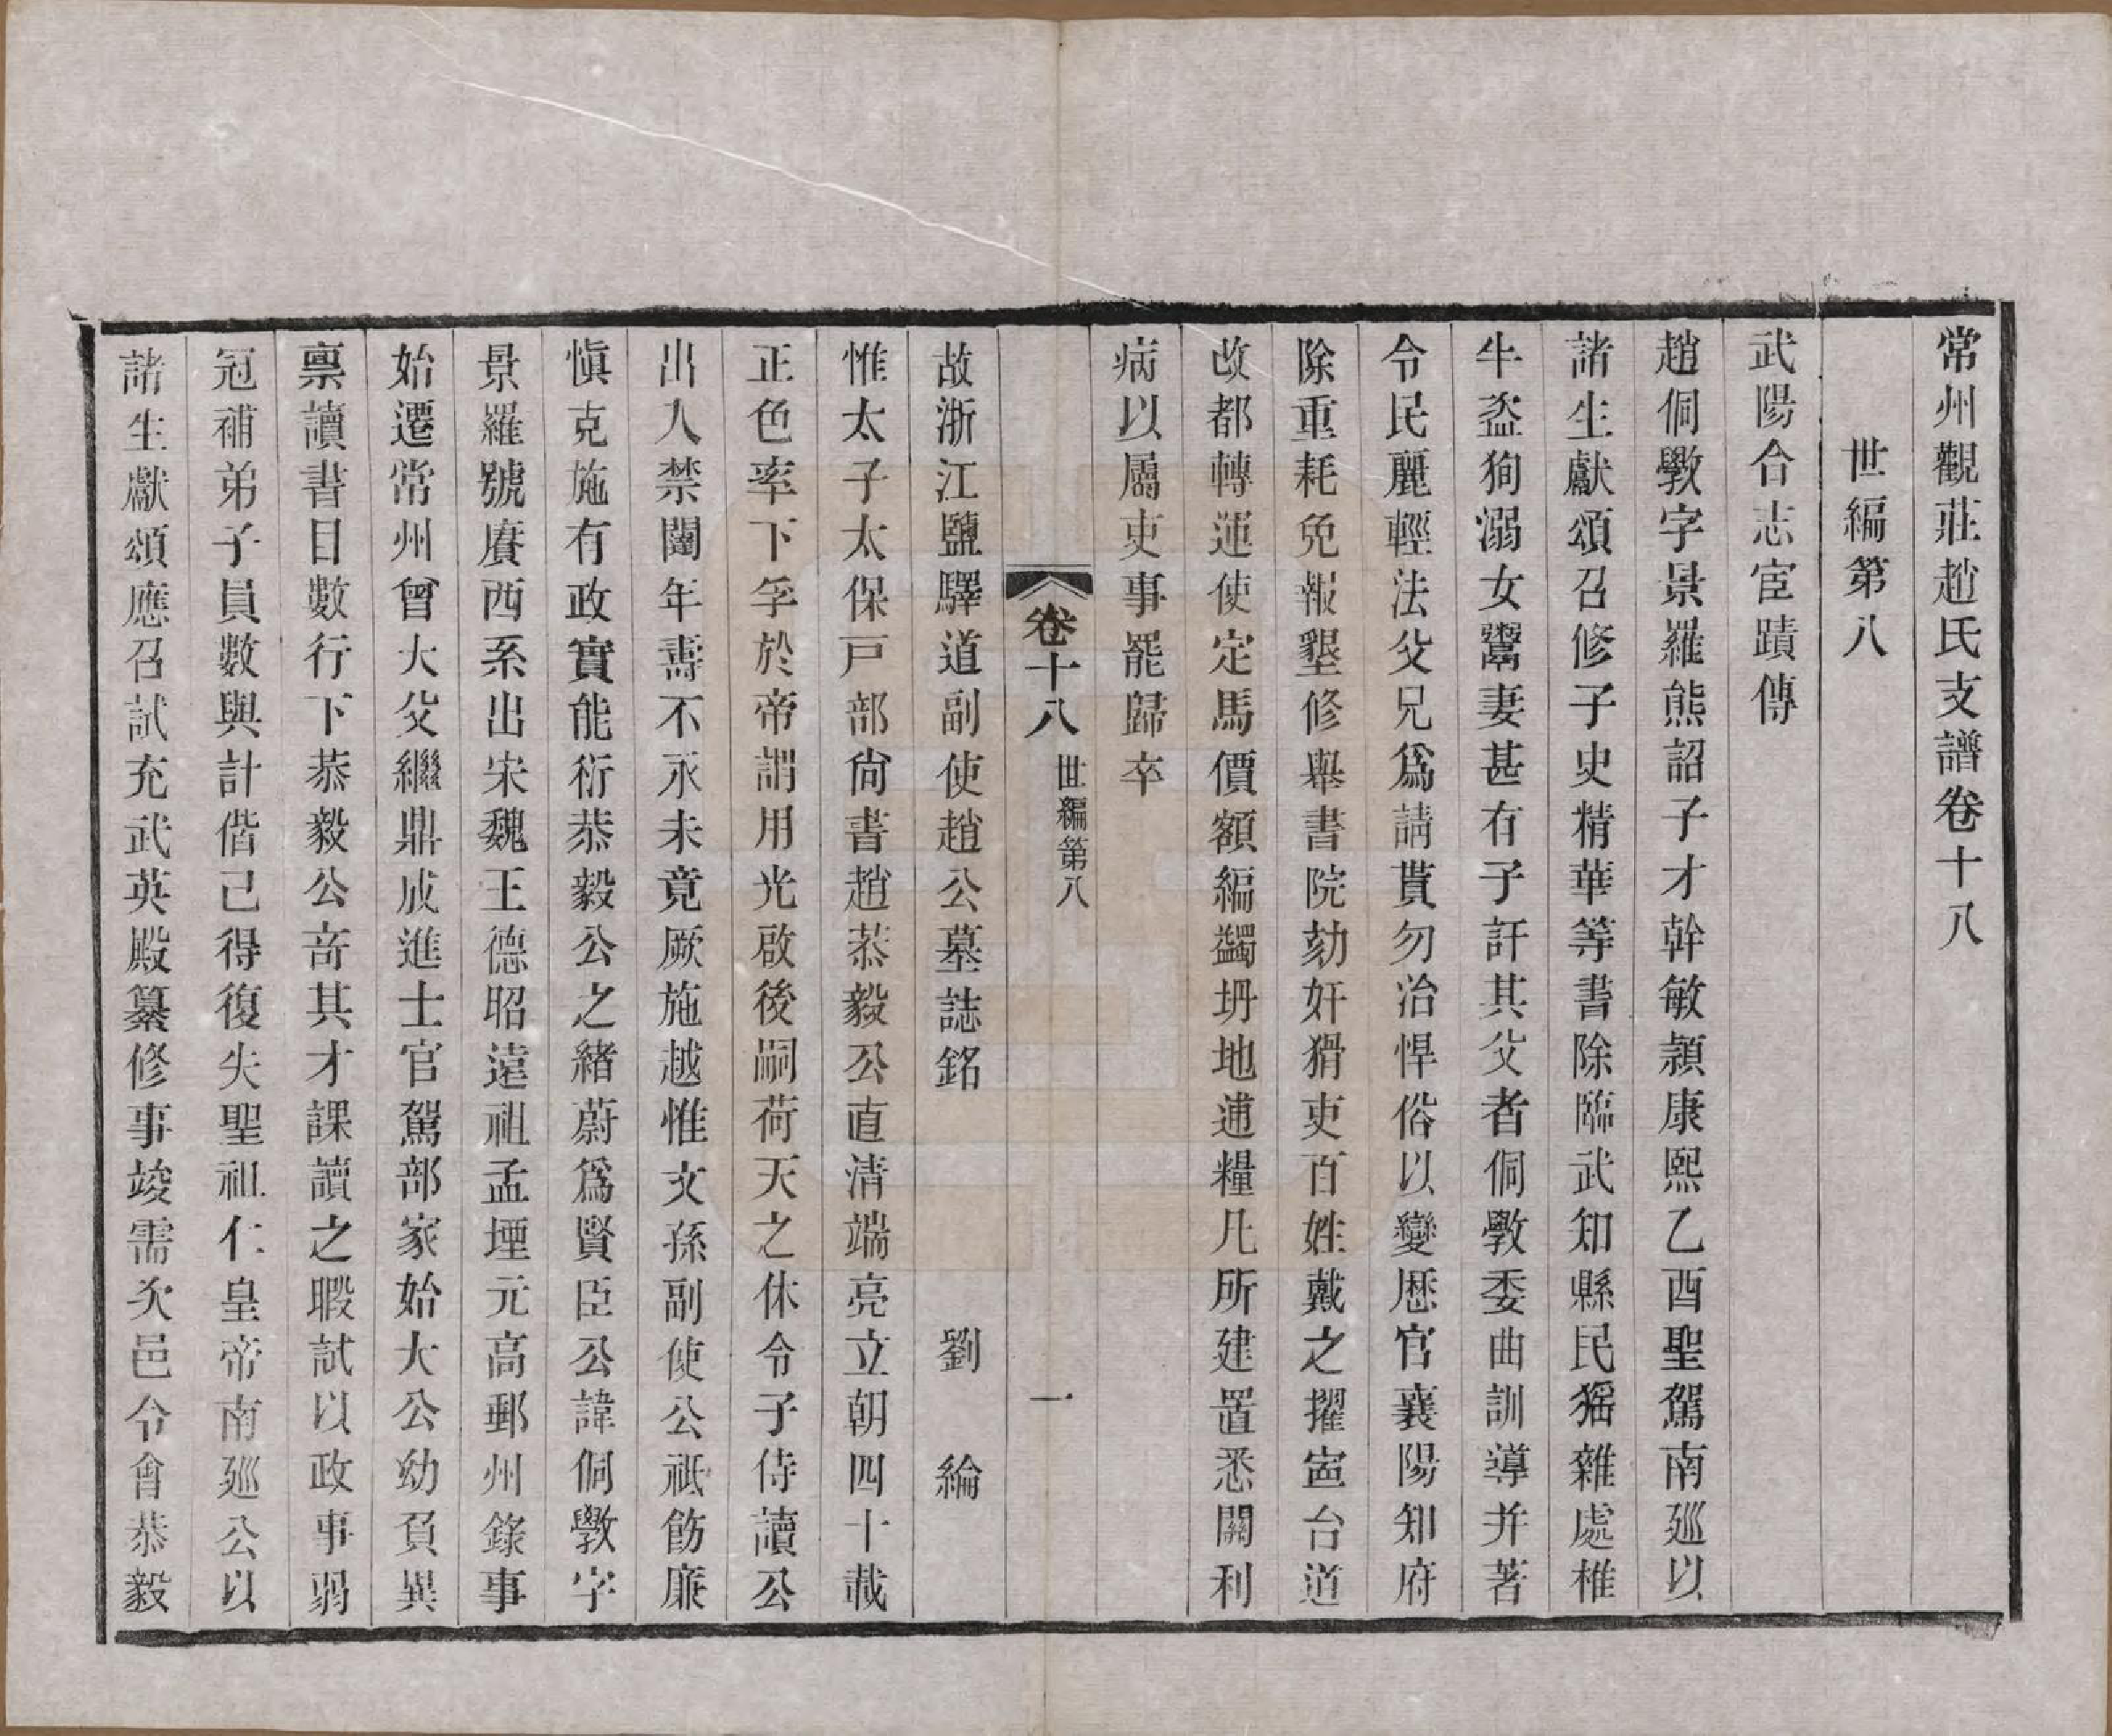 常州觀莊趙氏支譜卷十八
世編第八
武陽合志宦蹟傳
趙侗斆字景羅熊詔子才幹敏頴康熙乙酉聖駕南廵以
諸生獻頌召修子史精華等書除臨武知縣民猺雜處椎
牛盗狥溺女鬻妻甚有子訐其父者侗斆委曲訓導并著
令民麗輕法父兄爲請貰勿治悍俗以變歴官襄陽知府
除重耗免報墾修舉書院劾奸猾吏百姓戴之擢寍台道
改都轉運使定馬價額編蠲坍地逋糧凡所建置悉關利
病以屬吏事罷歸卒
卷十八 世編第八 一
故浙江鹽驛道副使趙公墓誌銘 劉綸
惟太子太保戸部尙書趙恭毅公直清端亮立朝四十載
正色率下孚於帝謂用光啟後嗣荷天之休令子侍讀公
出入禁闥年壽不永未竟厥施越惟文孫副使公祗飭廉
愼克施有政實能衍恭毅公之緒蔚爲賢臣公諱侗斆字
景羅號賡西系出宋魏王德昭遠祖孟堙元高郵州錄事
始遷常州曾大父繼鼎成進士官駕部家始大公幼負異
禀讀書目數行下恭毅公奇其才課讀之暇試以政事弱
冠補弟子員數與計偕已得復失聖祖仁皇帝南廵公以
諸生獻頌應召試充武英殿纂修事竣需次邑令會恭毅